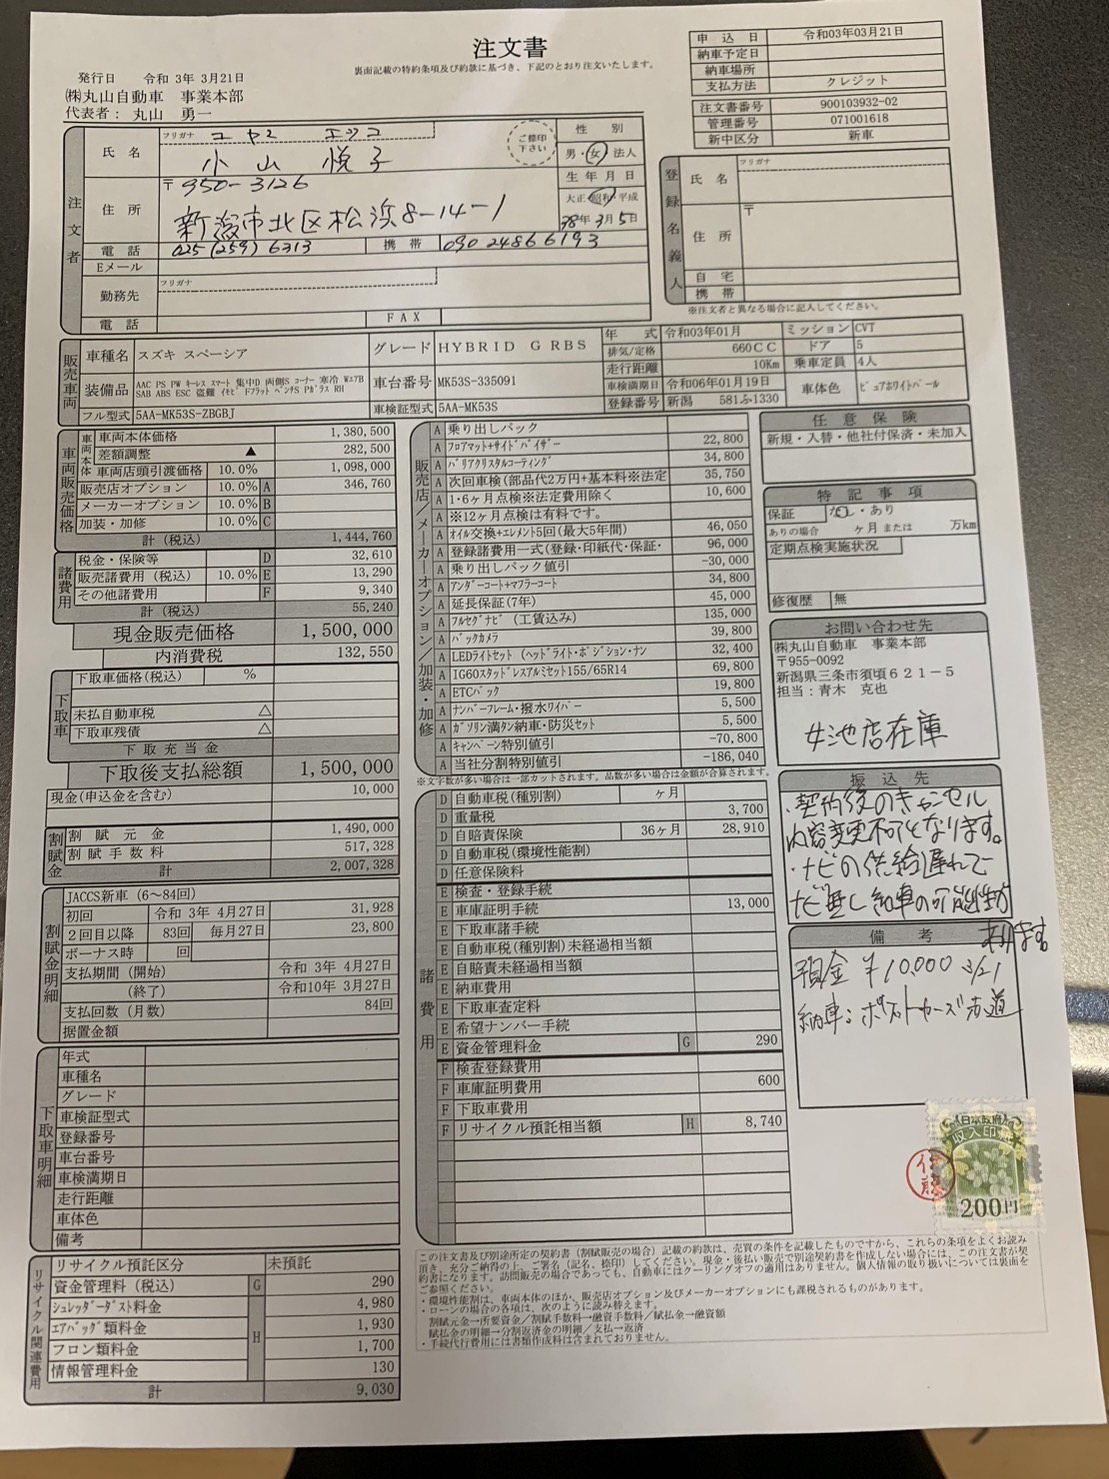 注文書
裏面記載の特約条項及び約款に基づき、下記のとおり注文いたします。
発行日 令和 3年 3月21日
㈱丸山自動車 事業本部
代表者：丸山 勇一
申込日 令和03年03月21日
納車予定日
納車場所
支払方法 クレジット
注文書番号 900103932-02
管理番号 071001618
新中区分 新車
注文者
フリガナ コヤマ エツコ
氏名 小山 悦子
ご捺印下さい
性別
男・女・法人
生年月日
大正・昭和・平成
38年3月5日
住所 〒950-3126
新潟市北区松浜8-14-1
電話 025(259)6313 携帯 090 2486 6193
Eメール
フリガナ
勤務先
電話 FAX
登録名義人
フリガナ
氏名
〒
住所
自宅
携帯
※注文者と異なる場合に記入してください。
販売車両
車種名 スズキ スペーシア グレード HYBRID G RBS
年式 令和03年01月 ミッション CVT
排気/定格 660CC ドア 5
走行距離 10Km 乗車定員 4人
装備品 AAC PS PW キーレス スマート 集中D 両側S コーナー 寒冷 WエアB
SAB ABS ESC 盗難 イモビ ドアラット ベンチS Pガラス RH
車台番号 MK53S-335091
車検満期日 令和06年01月19日 車体色 ピュアホワイトパール
フル型式 5AA-MK53S-ZBGBJ 車検証型式 5AA-MK53S 登録番号 新潟 581ふ1330
車両販売価格
車両本体
車両本体価格 1,380,500
差額調整 ▲ 282,500
車両店頭引渡価格 10.0% 1,098,000
販売店オプション 10.0% A 346,760
メーカーオプション 10.0% B
加装・加修 10.0% C
計（税込） 1,444,760
諸費用
税金・保険等 D 32,610
販売諸費用（税込） 10.0% E 13,290
その他諸費用 F 9,340
計（税込） 55,240
現金販売価格 1,500,000
内消費税 132,550
下取車
下取車価格(税込) %
未払自動車税 △
下取車残債 △
下取充当金
下取後支払総額 1,500,000
現金(申込金を含む) 10,000
割賦金
割賦元金 1,490,000
割賦手数料 517,328
計 2,007,328
割賦金明細
JACCS新車（6～84回）
初回 令和 3年 4月27日 31,928
2回目以降 83回 毎月27日 23,800
ボーナス時 回
支払期間（開始） 令和 3年 4月27日
（終了） 令和10年 3月27日
支払回数（月数） 84回
据置金額
下取車明細
年式
車種名
グレード
車検証型式
登録番号
車台番号
車検満期日
走行距離
車体色
備考
リサイクル関連費用
リサイクル預託区分 未預託
資金管理料（税込） G 290
シュレッダーダスト料金 4,980
エアバッグ類料金 H 1,930
フロン類料金 1,700
情報管理料金 130
計 9,030
販売店/メーカーオプション/加装・加修
A 乗り出しパック
A フロアマット+サイドバイザー 22,800
A バリアクリスタルコーティング 34,800
A 次回車検(部品代2万円+基本料※法定 35,750
A 1・6ヶ月点検※法定費用除く 10,600
A ※12ヶ月点検は有料です。
A オイル交換+エレメント5回(最大5年間) 46,050
A 登録諸費用一式(登録・印紙代・保証・ 96,000
A 乗り出しパック値引 -30,000
A アンダーコート+マフラーコート 34,800
A 延長保証(7年) 45,000
A フルセグナビ(工賃込み) 135,000
A バックカメラ 39,800
A LEDライトセット(ヘッドライト・ポジション・ナン 32,400
A IG60スタッドレスアルミセット155/65R14 69,800
A ETCパック 19,800
A ナンバーフレーム・撥水ワイパー 5,500
A ガソリン満タン納車・防災セット 5,500
A キャンペーン特別値引 -70,800
A 当社分割特別値引 -186,040
※文字数が多い場合は一部カットされます。品数が多い場合は金額が合算されます。
諸費用
D 自動車税(種別割) ヶ月
D 重量税 3,700
D 自賠責保険 36ヶ月 28,910
D 自動車税(環境性能割)
D 任意保険料
E 検査・登録手続
E 車庫証明手続 13,000
E 下取車諸手続
E 自動車税(種別割)未経過相当額
E 自賠責未経過相当額
E 納車費用
E 下取車査定料
E 希望ナンバー手続
E 資金管理料金 G 290
F 検査登録費用
F 車庫証明費用 600
F 下取車費用
F リサイクル預託相当額 H 8,740
任意保険
新規・入替・他社付保済・未加入
特記事項
保証 なし・あり
ありの場合 ヶ月 または 万km
定期点検実施状況
修復歴 無
お問い合わせ先
㈱丸山自動車 事業本部
〒955-0092
新潟県三条市須頃621-5
担当：青木 克也
女池店在庫
振込先
・契約後のキャンセル
内容変更不可となります。
・ナビの供給遅れで
ナビ無し納車の可能性が
あります
備考
預金 ¥10,000 3/21
納車：ポストカーズ赤道
日本政府
収入印紙
200円
伊藤
この注文書及び別途所定の契約書（割賦販売の場合）記載の約款は、売買の条件を記載したものですから、これらの条項をよくお読み
頂き、充分ご納得の上、ご署名（記名、捺印）してください。現金・後払い販売で別途契約書を作成しない場合には、この注文書が契
約書になります。訪問販売の場合であっても、自動車にはクーリングオフの適用はありません。個人情報の取り扱いについては裏面を
ご参照ください。
・環境性能割は、車両本体のほか、販売店オプション及びメーカーオプションにも課税されるものがあります。
・ローンの場合の各項は、次のように読み替えます。
割賦元金→所要資金/割賦手数料→融資手数料/賦払金→融資額
賦払金の明細→分割返済金の明細/支払→返済
・手続代行費用には書類作成料は含まれておりません。